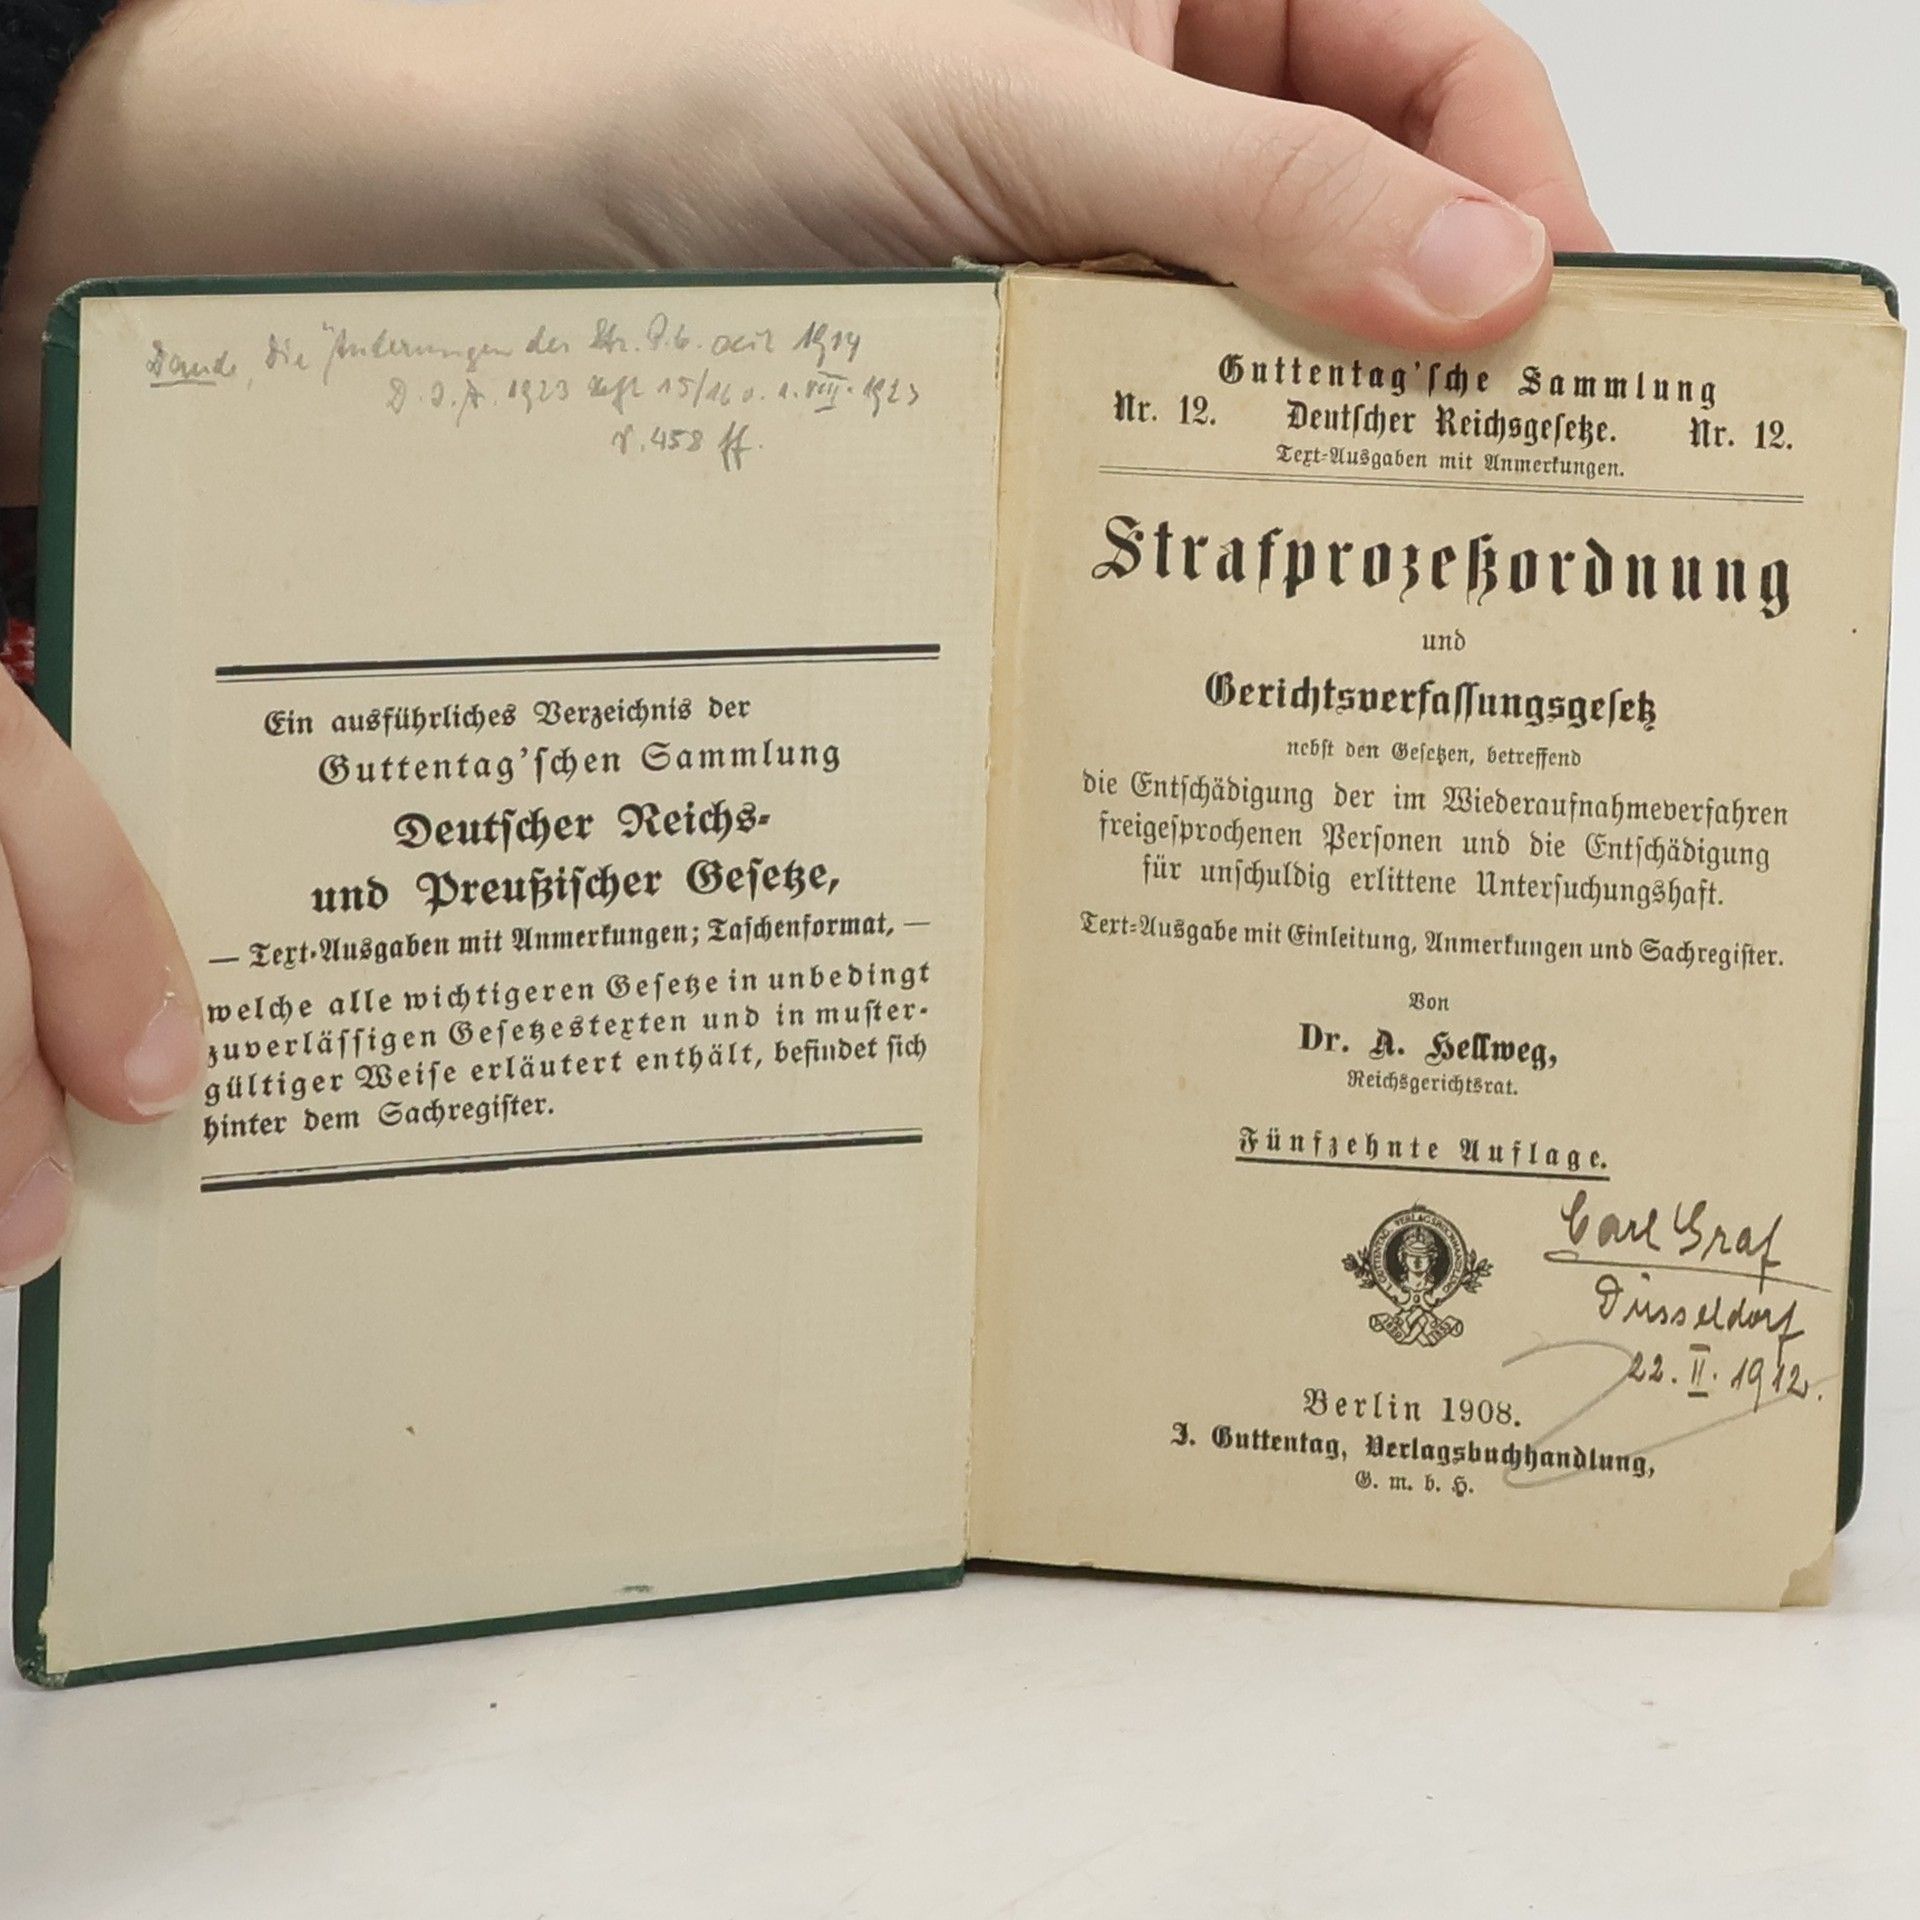 Daude, die Änderungen des Str. G. b. seit 1914
D. J. Z. 1923 Heft 15/16 v. 1. VIII. 1923
S. 458 ff.
Ein ausführliches Verzeichnis der
Guttentag'schen Sammlung
Deutscher Reichs-
und Preußischer Gesetze,
— Text-Ausgaben mit Anmerkungen; Taschenformat, —
welche alle wichtigeren Gesetze in unbedingt
zuverlässigen Gesetzestexten und in muster-
gültiger Weise erläutert enthält, befindet sich
hinter dem Sachregister.
Guttentag'sche Sammlung
Nr. 12. Deutscher Reichsgesetze. Nr. 12.
Text-Ausgaben mit Anmerkungen.
Strafprozeßordnung
und
Gerichtsverfassungsgesetz
nebst den Gesetzen, betreffend
die Entschädigung der im Wiederaufnahmeverfahren
freigesprochenen Personen und die Entschädigung
für unschuldig erlittene Untersuchungshaft.
Text-Ausgabe mit Einleitung, Anmerkungen und Sachregister.
Von
Dr. A. Hellweg,
Reichsgerichtsrat.
Fünfzehnte Auflage.
J. GUTTENTAG, VERLAGSBUCHHANDLUNG
Carl Graf
Düsseldorf
22. II. 1912.
Berlin 1908.
J. Guttentag, Verlagsbuchhandlung,
G. m. b. H.